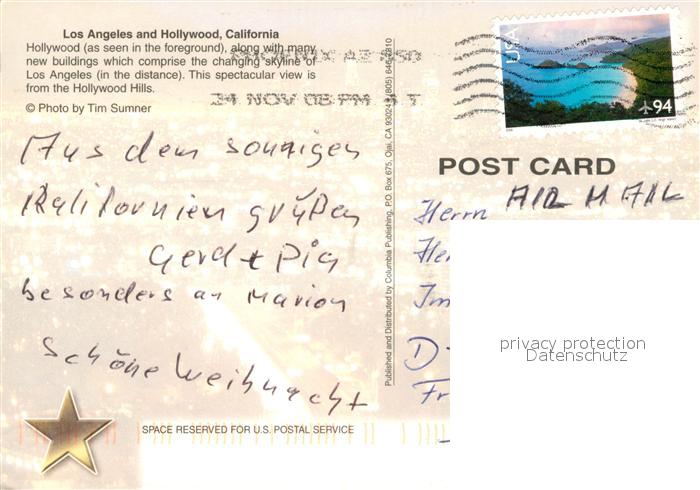 Los Angeles and Hollywood, California
Hollywood (as seen in the foreground), along with many
new buildings which comprise the changing skyline of
Los Angeles (in the distance). This spectacular view is
from the Hollywood Hills.
© Photo by Tim Sumner
24 NOV 08 PM
Aus dem sonnigen
Kalifornien grüßen
Gerd + Pia
besonders an Marion
Schöne Weihnacht
SPACE RESERVED FOR U.S. POSTAL SERVICE
Published and Distributed by Columbia Publishing, P.O. Box 675, Ojai, CA 93024
USA
94
POST CARD
AIR MAIL
Herrn
privacy protection
Datenschutz